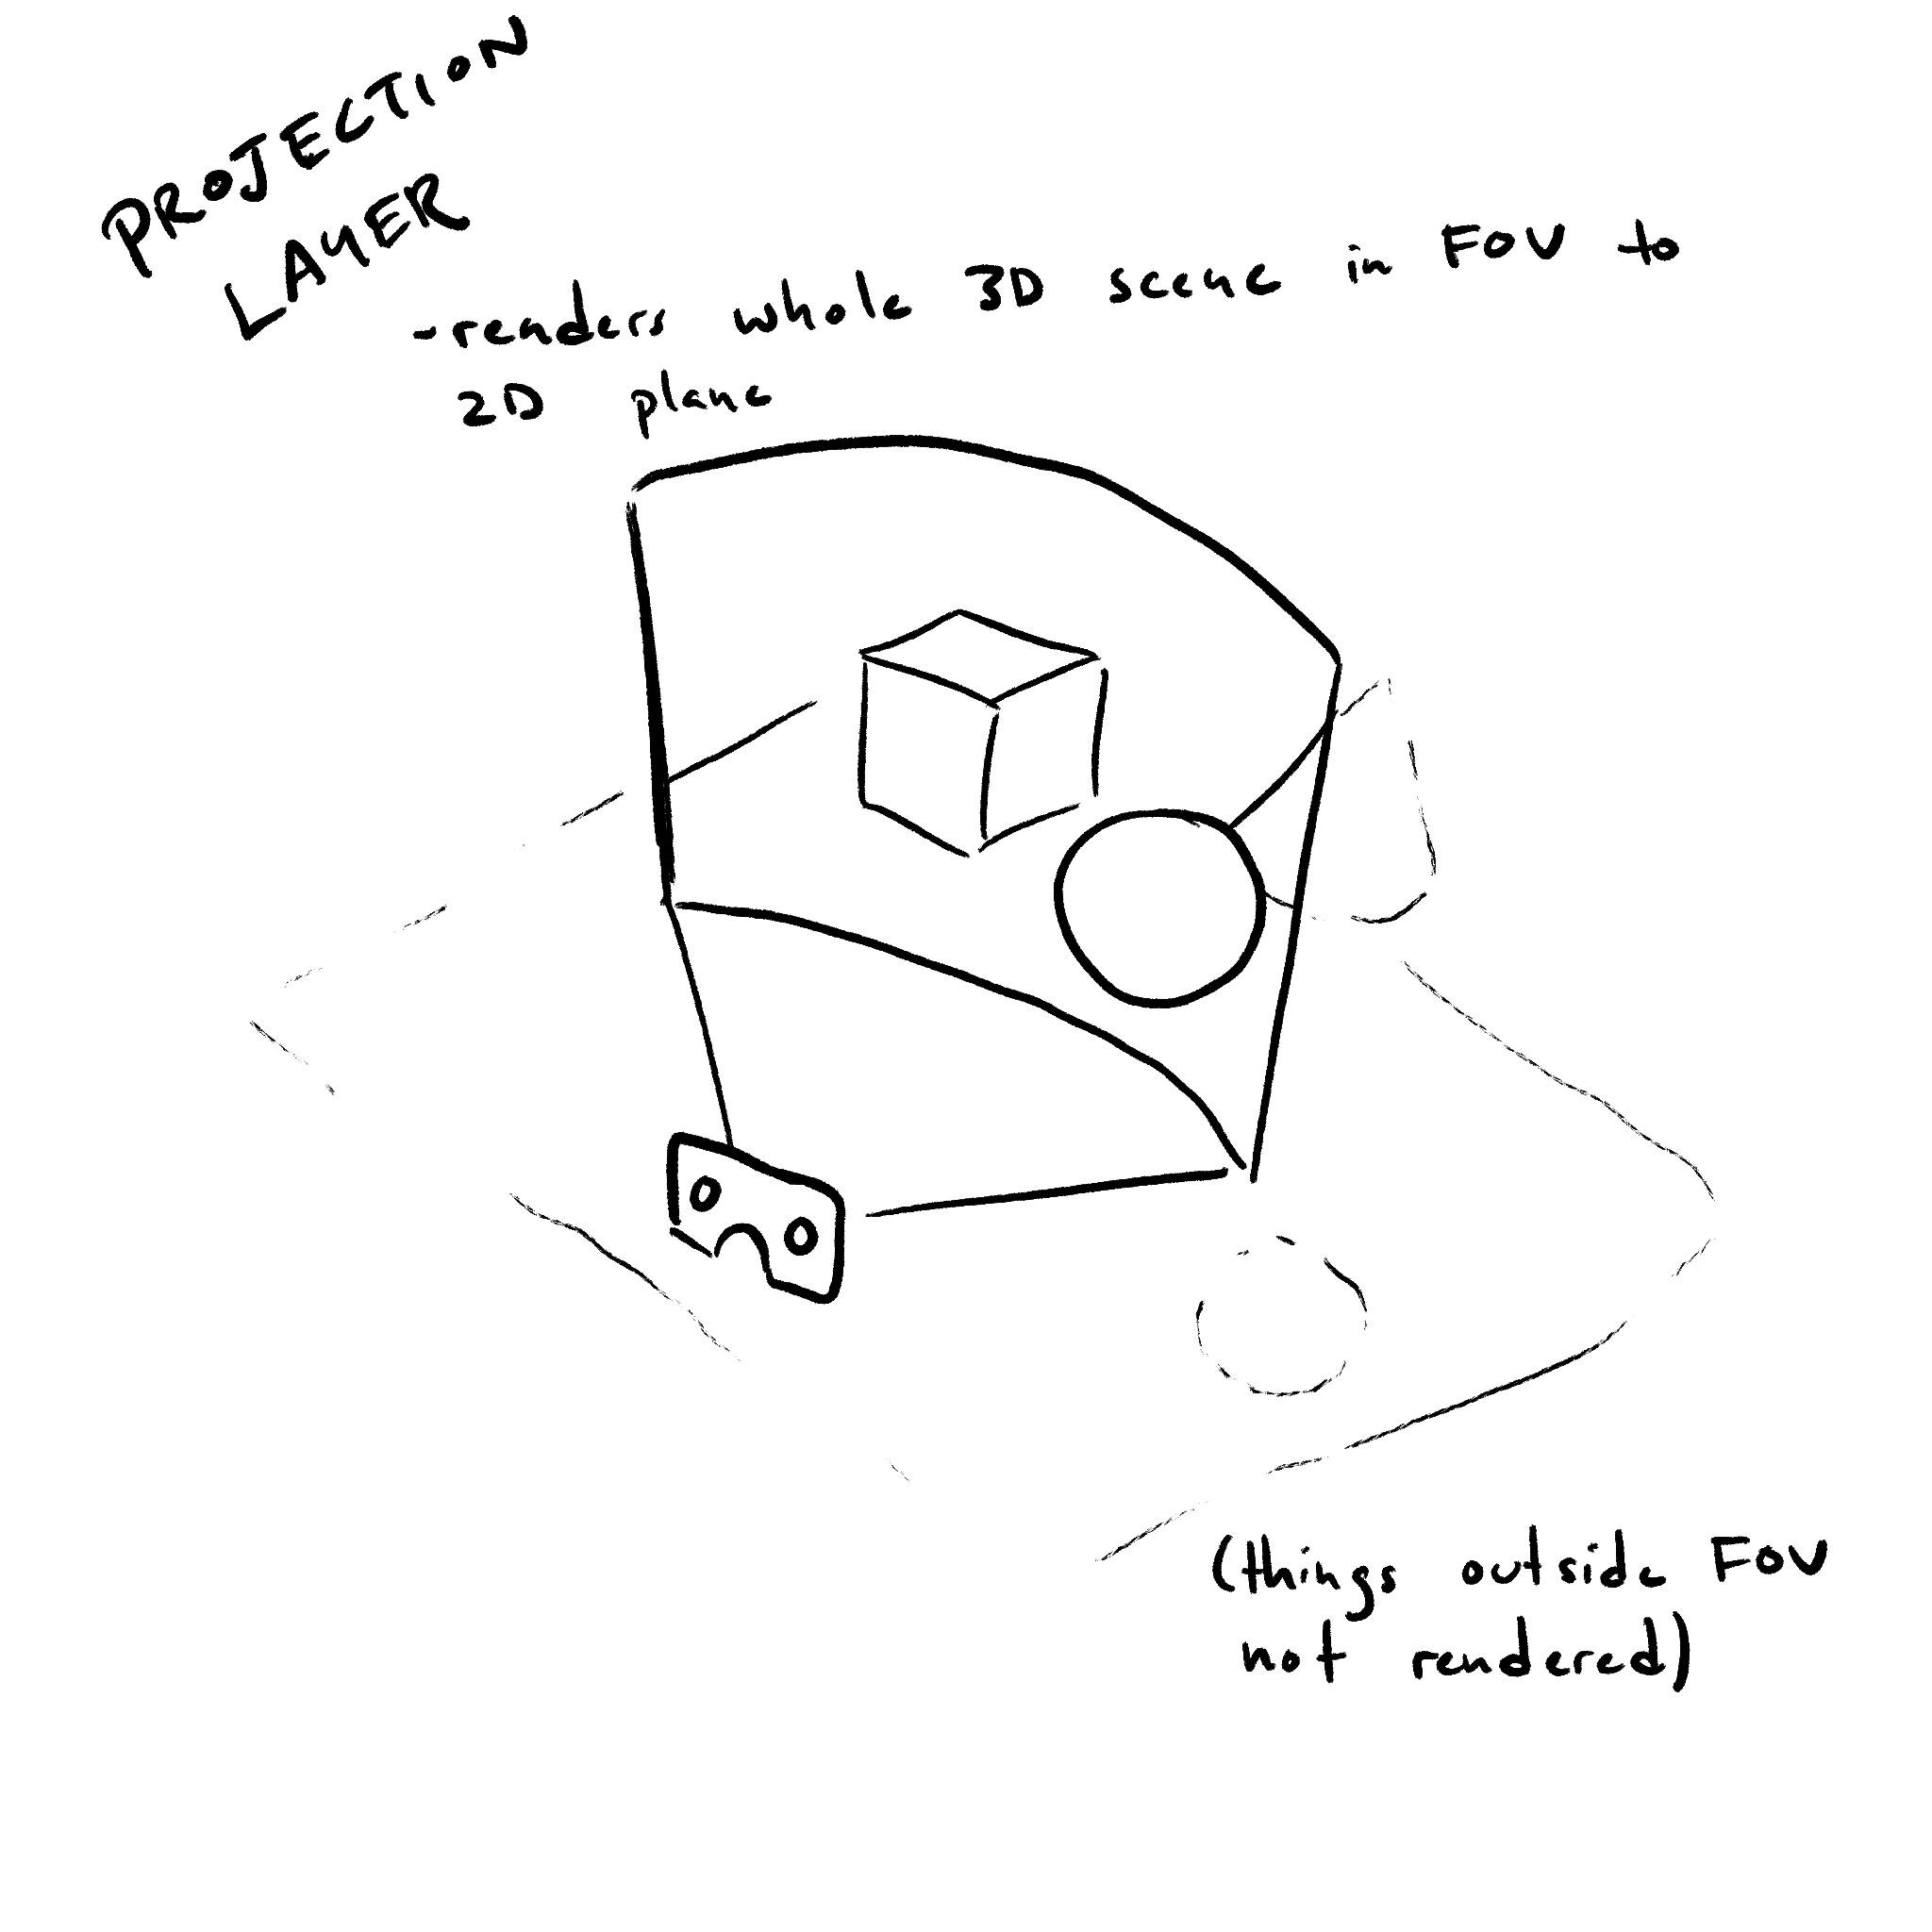 PROJECTION
LAYER
-renders whole 3D scene in FOV to
2D plane
(things outside FOV
not rendered)